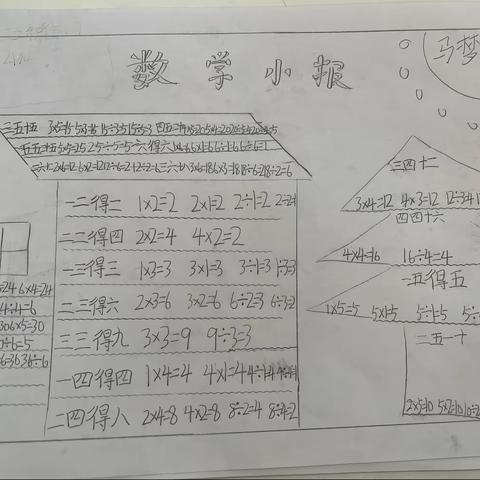 数学小报
马梦
三五十五 3×5=15 5×3=15 15÷3=5 15÷5=3 四五二十 4×5=20 5×4=20 20÷5=4 20÷4=5
五五二十五 5×5=25 25÷5=5 一六得六 1×6=6 6×1=6 6÷1=6 6÷6=1
二六十二 2×6=12 6×2=12 12÷6=2 12÷2=6 三六十八 3×6=18 6×3=18 18÷6=3 18÷3=6
一二得二 1×2=2 2×1=2 2÷1=2
二二得四 2×2=4 4×2=2
一三得三 1×3=3 3×1=3 3÷1=3 1÷3=3
二三得六 2×3=6 3×2=6 6÷2=3 6÷3=2
三三得九 3×3=9 9÷3=3
一四得四 1×4=4 4×1=4
二四得八 2×4=8 4×2=8 8÷2=4 8÷4=2
=24 6×4=24
4÷4=6
30 6×5=30
0÷6=5
6=36 36÷6
三四十二
3×4=12 4×3=12 12÷3=4
四四十六
4×4=16 16÷4=4
一五得五
1×5=5 5×1=5 5÷1=5
二五一十
2×5=10 5×2=10